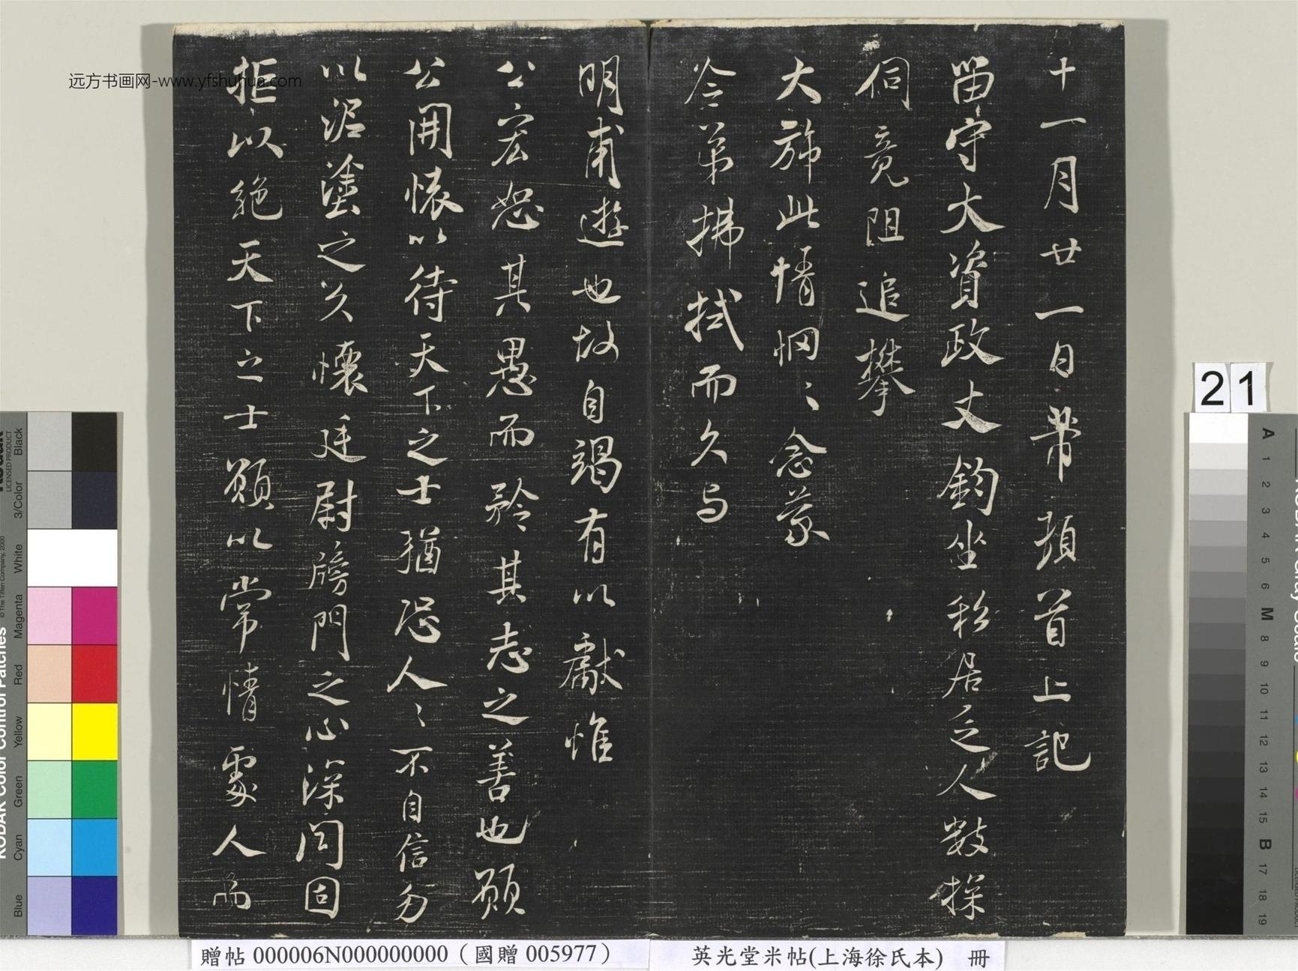 十一月廿一日芾頓首上記
留守大資政丈鈞坐移居乏人數探
伺竟阻追攀
大旆此情惘〻念蒙
令弟拂拭而久与
明甫遊也故自竭有以獻惟
公宏恕其愚而矜其志之善也願
公開懐以待天下之士猶恐人〻不自信勿
以泥塗之久懷廷尉牓門之心深閉固
拒以絕天下之士願以常情處人而
远方书画网-www.yfshuhua.com
21
贈帖 000006N000000000（國贈 005977）
英光堂米帖(上海徐氏本) 冊
KODAK Color Control Patches
Blue
Cyan
Green
Yellow
Red
Magenta
White
3/Color
Black
LICENSED PRODUCT
© The Tiffen Company, 2000
A 1 2 3 4 5 6 M 8 9 10 11 12 13 14 15 B 17 18 19